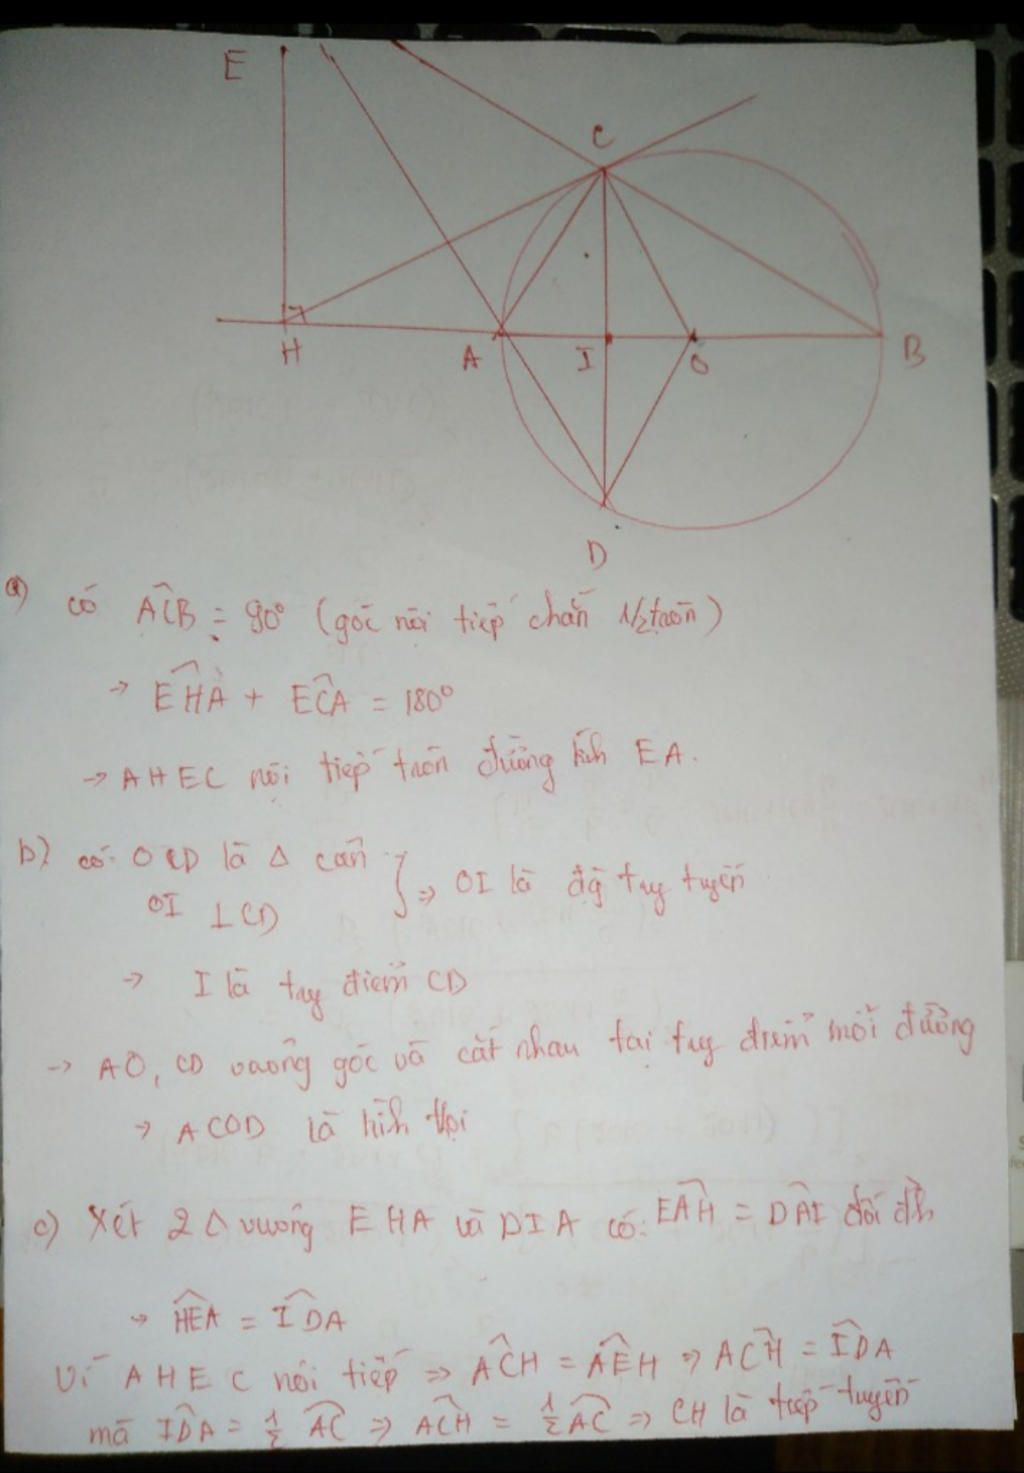 E
C
H
A
I
O
B
D
a) có ACB = 90° (góc nội tiếp chắn 1/2 tròn)
→ EHA + ECA = 180°
→ AHEC nội tiếp tròn đường kính EA.
b) có OCD là Δ cân
OI ⊥ CD } ⇒ OI là đg tuy tuyến
→ I là tuy điểm CD
→ AO, CD vuông góc và cắt nhau tại tuy điểm mỗi đường
→ ACOD là hình thoi
c) Xét 2 Δ vuông EHA và DIA có: EAH = DAI đối đỉh
→ HEA = IDA
Vì AHEC nội tiếp ⇒ ACH = AEH ⇒ ACH = IDA
mà IDA = 1/2 AC ⇒ ACH = 1/2 AC ⇒ CH là tiếp tuyến